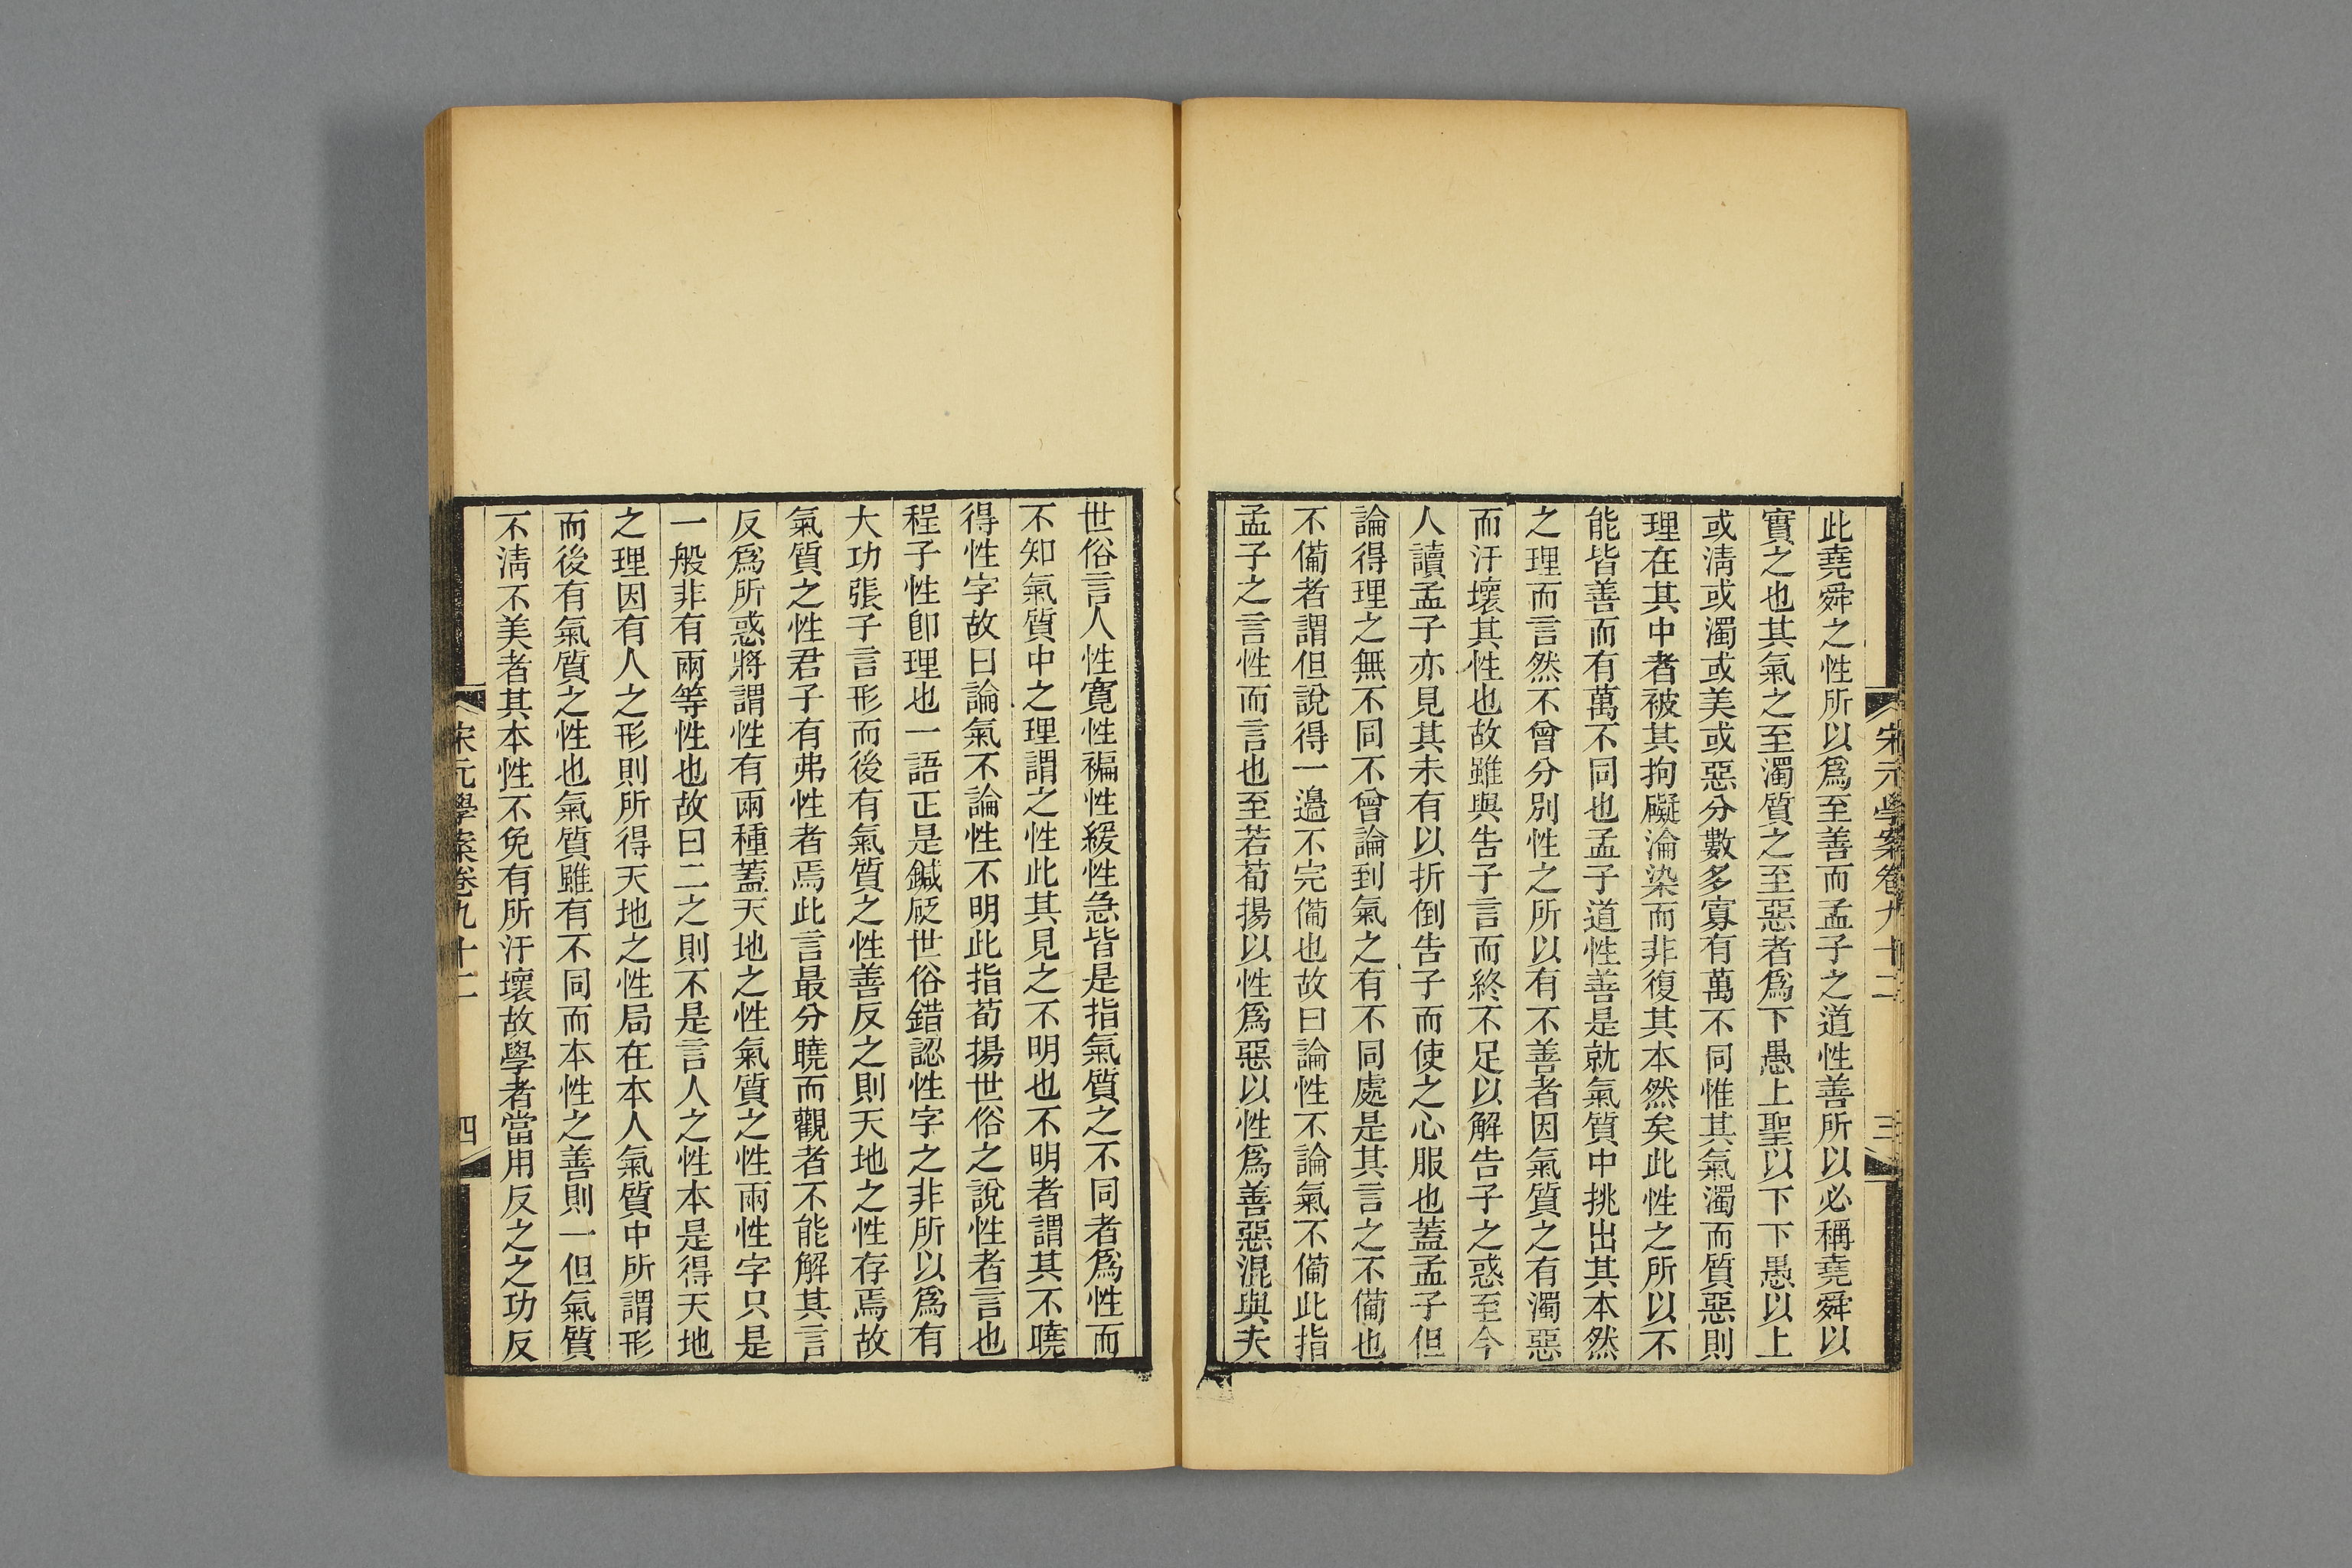 宋元學案卷九十二
三
此堯舜之性所以爲至善而孟子之道性善所以必稱堯舜以
實之也其氣之至濁質之至惡者爲下愚上聖以下下愚以上
或淸或濁或美或惡分數多寡有萬不同惟其氣濁而質惡則
理在其中者被其拘礙淪染而非復其本然矣此性之所以不
能皆善而有萬不同也孟子道性善是就氣質中挑出其本然
之理而言然不曾分別性之所以有不善者因氣質之有濁惡
而汙壞其性也故雖與告子言而終不足以解告子之惑至今
人讀孟子亦見其未有以折倒告子而使之心服也蓋孟子但
論得理之無不同不曾論到氣之有不同處是其言之不備也
不備者謂但說得一邊不完備也故曰論性不論氣不備此指
孟子之言性而言也至若荀揚以性爲惡以性爲善惡混與夫
世俗言人性寬性褊性緩性急皆是指氣質之不同者爲性而
不知氣質中之理謂之性此其見之不明也不明者謂其不曉
得性字故曰論氣不論性不明此指荀揚世俗之說性者言也
程子性卽理也一語正是鍼砭世俗錯認性字之非所以爲有
大功張子言形而後有氣質之性善反之則天地之性存焉故
氣質之性君子有弗性者焉此言最分曉而觀者不能解其言
反爲所惑將謂性有兩種蓋天地之性氣質之性兩性字只是
一般非有兩等性也故曰二之則不是言人之性本是得天地
之理因有人之形則所得天地之性局在本人氣質中所謂形
而後有氣質之性也氣質雖有不同而本性之善則一但氣質
不淸不美者其本性不免有所汙壞故學者當用反之之功反
宋元學案卷九十二
四